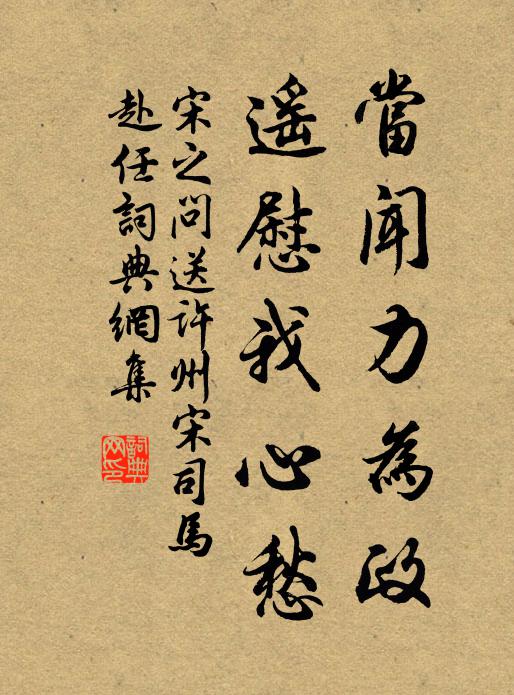 當聞力為政
遥慰我心愁
宋之问送許州宋司馬
赴任詞典網集
詞典网印